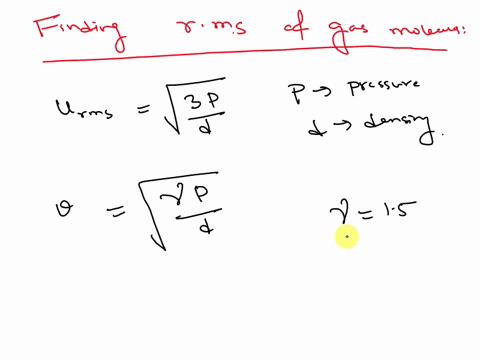 Finding r.m.s of gas molecu:
u rms = √(3P/d)
P → pressure
d → density.
v = √(γP/d)
γ = 1.5